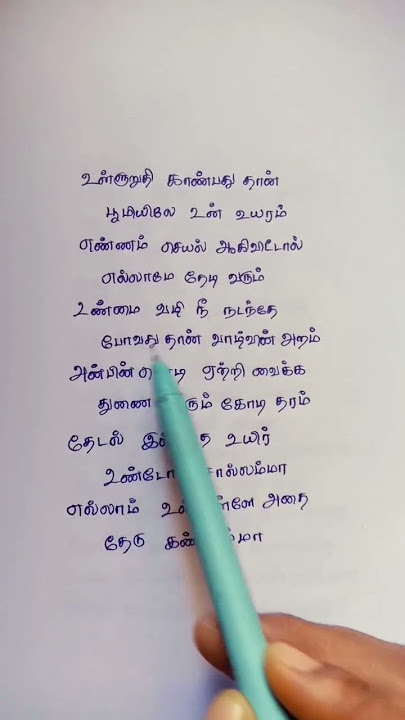 உள்ளுறுதி காண்பது தான்
பூமியிலே உன் உயரம்
எண்ணம் செயல் ஆகிவிட்டால்
எல்லாமே தேடி வரும்
உண்மை வழி நீ நடந்தே
போவது தான் வாழ்வின் அறம்
அன்பின் ஏற்றி வைக்க
துணை கோடி தரம்
தேடல் உயிர்
எல்லாம் அதை
தேடு